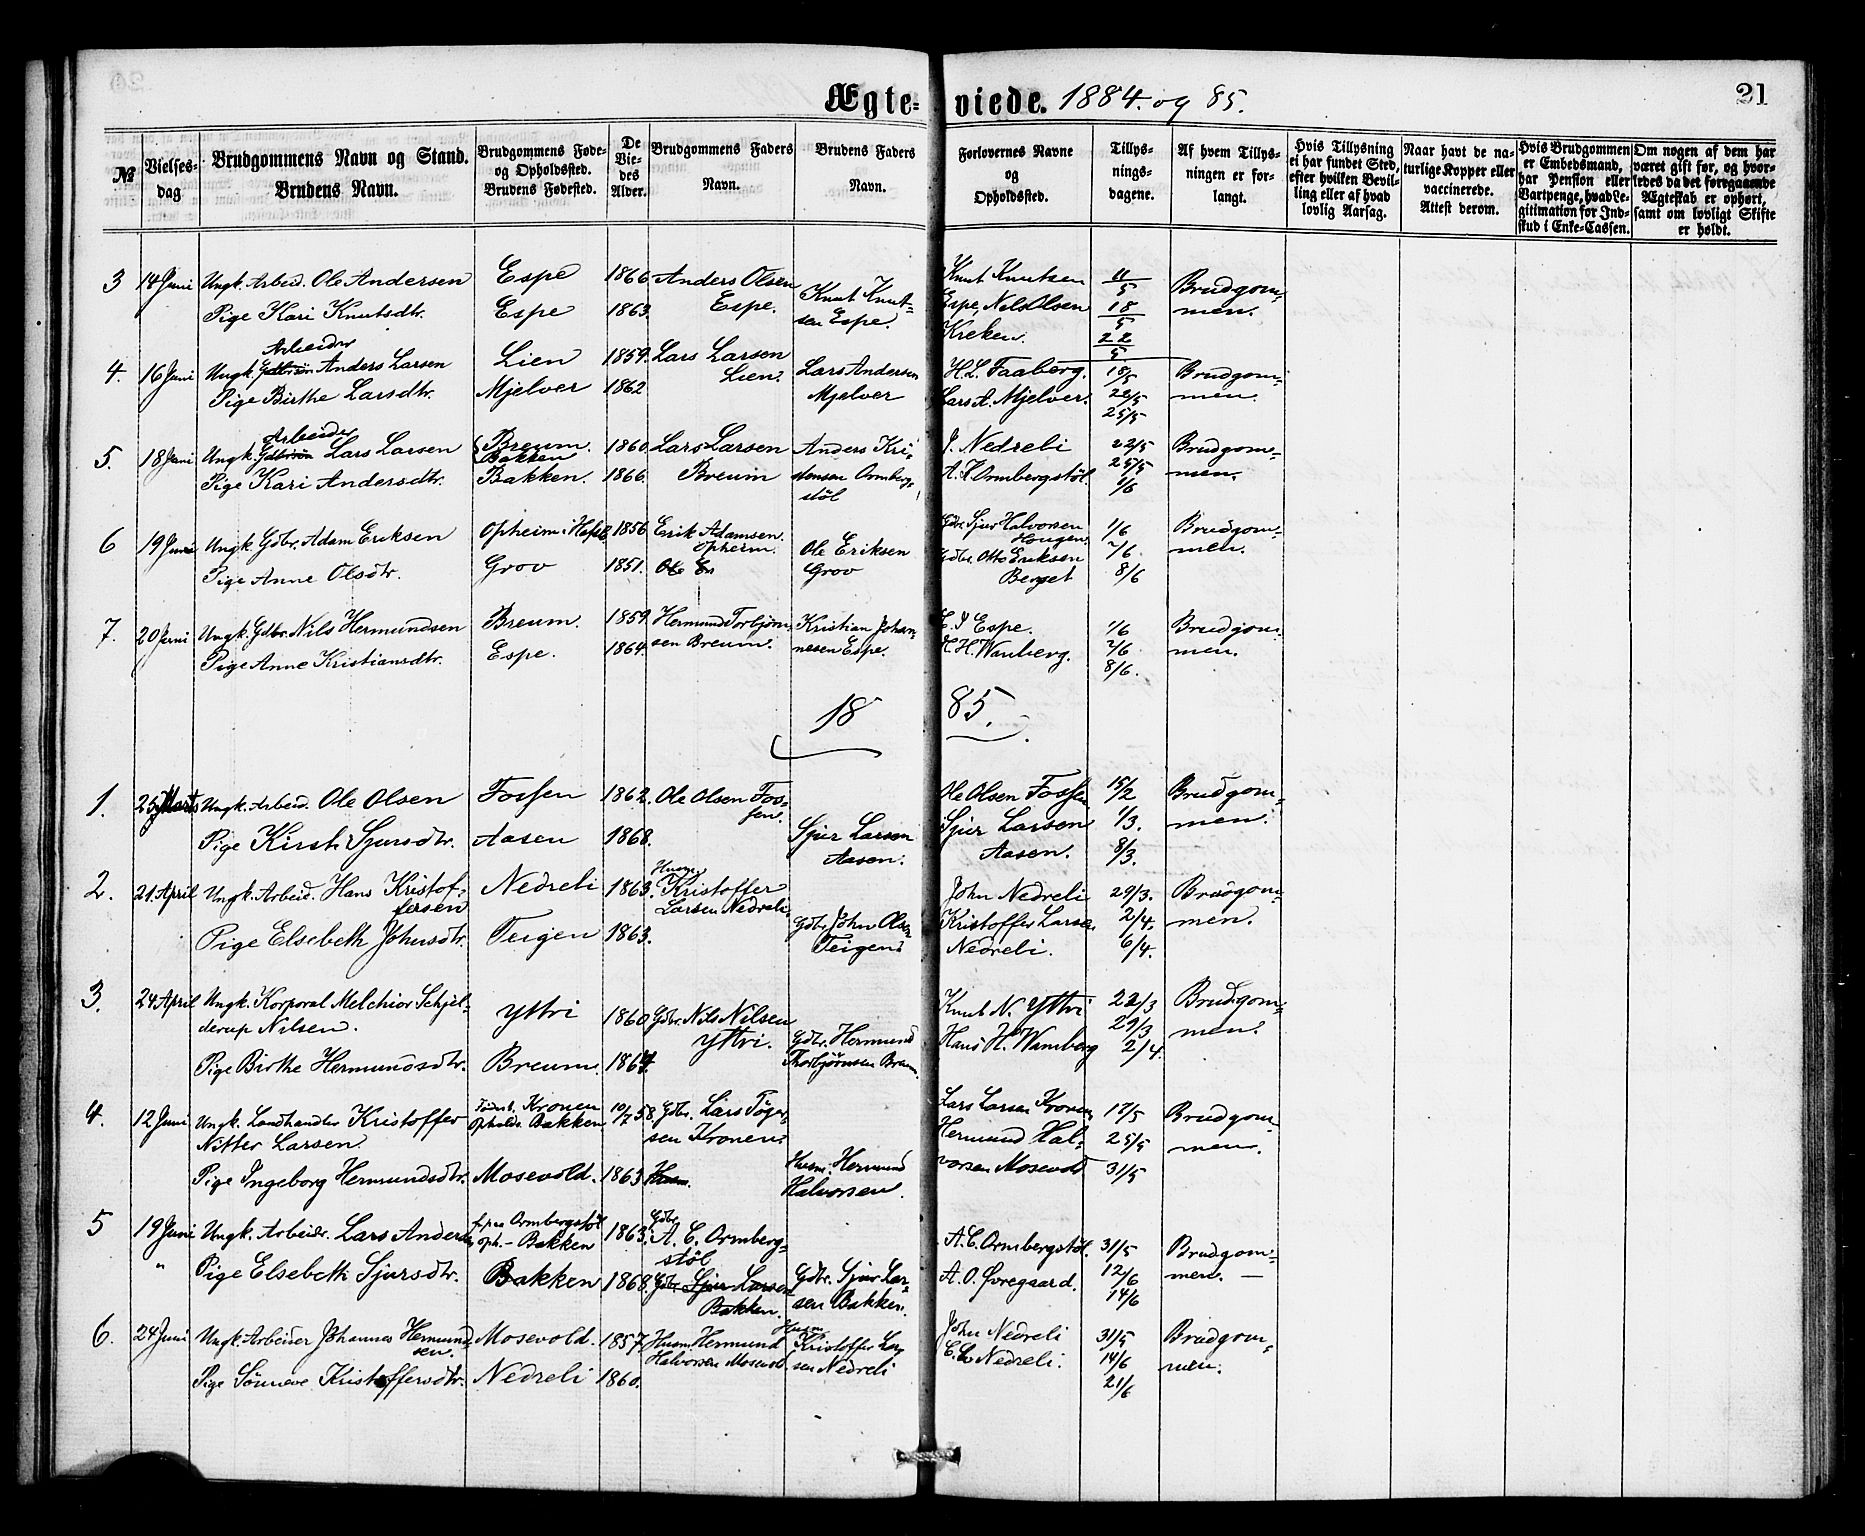 Ægte-viede. 1884. og 85.
21
№
Vielses-dag.
Brudgommens Navn og Stand.
Brudens Navn.
Brudgommens Føde- og Opholdssted.
Brudens Fødested.
De Viedes Alder.
Brudgommens Faders Navn.
Brudens Faders Navn.
Forlovernes Navne og Opholdssted.
Tillysningsdagene.
Af hvem Tillysningen er forlangt.
Hvis Tillysning ei har fundet Sted, efter hvilken Bevilling eller af hvad lovlig Aarsag.
Naar havt de naturlige Kopper eller vaccinerede. Attest derom.
Hvis Brudgommen er Embedsmand, har Pension eller Vartpenge, hvad Legitimation for Indskud i Enke-Cassen.
Om nogen af dem har været gift før, og hvorledes da det foregaaende Ægteskab er ophørt, samt om lovligt Skifte er holdt.
3 14 Juni Ungk. Arbeid. Ole Andersen Espe 1866 Anders Olsen Espe. Knut Knutsen 11/5 Brudgommen.
Pige Kari Knutsdtr. Espe 1863. Knut Knutsen Espe. Espe, Nils Olsen Kreken. 18/5 22/5
4. 16 Juni Ungk. Arbeider Anders Larsen Lien 1859. Lars Larsen Lien. Lars Andersen Mjelver H. L. Faaberg. 18/5 Brudgommen.
Pige Birthe Larsdtr. Mjelver 1862 Lars A. Mjelver. 22/5 25/5
5. 18 Juni Ungk. Arbeider Lars Larsen Breum. Bakken 1860. Lars Larsen Breum Anders Kristensen Ormbergstøl J. Nedrebi 22/5 Brudgommen.
Pige Kari Andersdtr. Bakken. 1866. A. K Ormbergstøl. 25/5 1/6
6 19 Juni Ungk. Gdbr. Adam Eriksen Opheim i Hafslo 1856 Erik Adamsen Opheim. Ole Eriksen Grov Gdbr. Sjur Halvorsen Haugen 1/6 Brudgommen.
Pige Anne Olsdtr. Grov 1851. Ole Er Gdbr. Otto Eriksen Berget 2/6. 8/6
7. 20 Juni Ungk. Gdbr. Nils Hermundsen Breum. 1859. Hermund Torbjørnsen Breum. Kristian Johannesen Espe. Espe. 1/6 Brudgommen.
Pige Anne Kristiansdtr. Espe. 1864. H. H. Wanberg. 2/6 8/6.
1885.
1. 25 Marts Ungk. Arbeid. Ole Olsen Fossen 1862. Ole Olsen Fossen. Ole Olsen Fossen 15/2 Brudgommen.
Pige Kirsti Sjursdtr. Aasen 1868. Sjur Larsen Aasen. Sjur Larsen Aasen. 1/3. 8/3.
2. 21. April Ungk. Arbeid. Hans Kristoffersen Nedrebi 1863. Husm. Kristoffer Larsen Nedrebi. John Nedrebi 29/3. Brudgommen.
Pige Elsebeth Johnsdtr. Teigen 1863. Gdbr. John Olsen Teigen. Kristoffer Larsen Nedrebi. 2/4. 6/4.
3. 24 April Ungk. Korporal Melchior Schjelderup Nilsen. Yttri 1860 Gdbr. Nils Nilsen Yttri. Knut N. Yttri 22/3 Brudgommen.
Pige Birthe Hermundsdtr. Breum. 1864. Gdbr. Hermund Thorbjørnsen Breum. Hans H. Wamberg 29/3 2/4.
4. 12 Juni Ungk. Landhandler Kristoffer Nitter Larsen Fødest. Kronen Opholds. Bakken 10/7 58. Gdbr. Lars Tøgersen Kronen. Lars Larsen Kronen 17/5 Brudgommen.
Pige Ingeborg Hermundsdtr. Mosevold. 1863 Husm. Husm. Hermund Halvorsen. Hermund Halvorsen Mosevold 25/5 31/5
5 19 Juni Ungk. Arbeidr. Lars Anders f. paa Ormbergstøl oph. - Bakken 1863. Gdbr. A. C. Ormbergstøl A. C. Ormbergstøl. 31/5 Brudgommen. —
" Pige Elsebeth Sjursdtr. Bakken 1868. Gdbr. Sjur Larsen Bakken. Gdbr. Sjur Larsen Bakken. A. O. Øvregaard. 12/6 14/6
6. 24 Juni Ungk. Arbeider Johannes Hermundsen. Mosevold. 1857. Husm. Hermund Halvorsen Mosevold. Husm. Kristoffer Larsen Nedrebi John Nedrebi 31/5 Brudgommen.
Pige Sønneve Kristoffersdtr. Nedrebi 1860. Nedrebi. 14/6 21/6